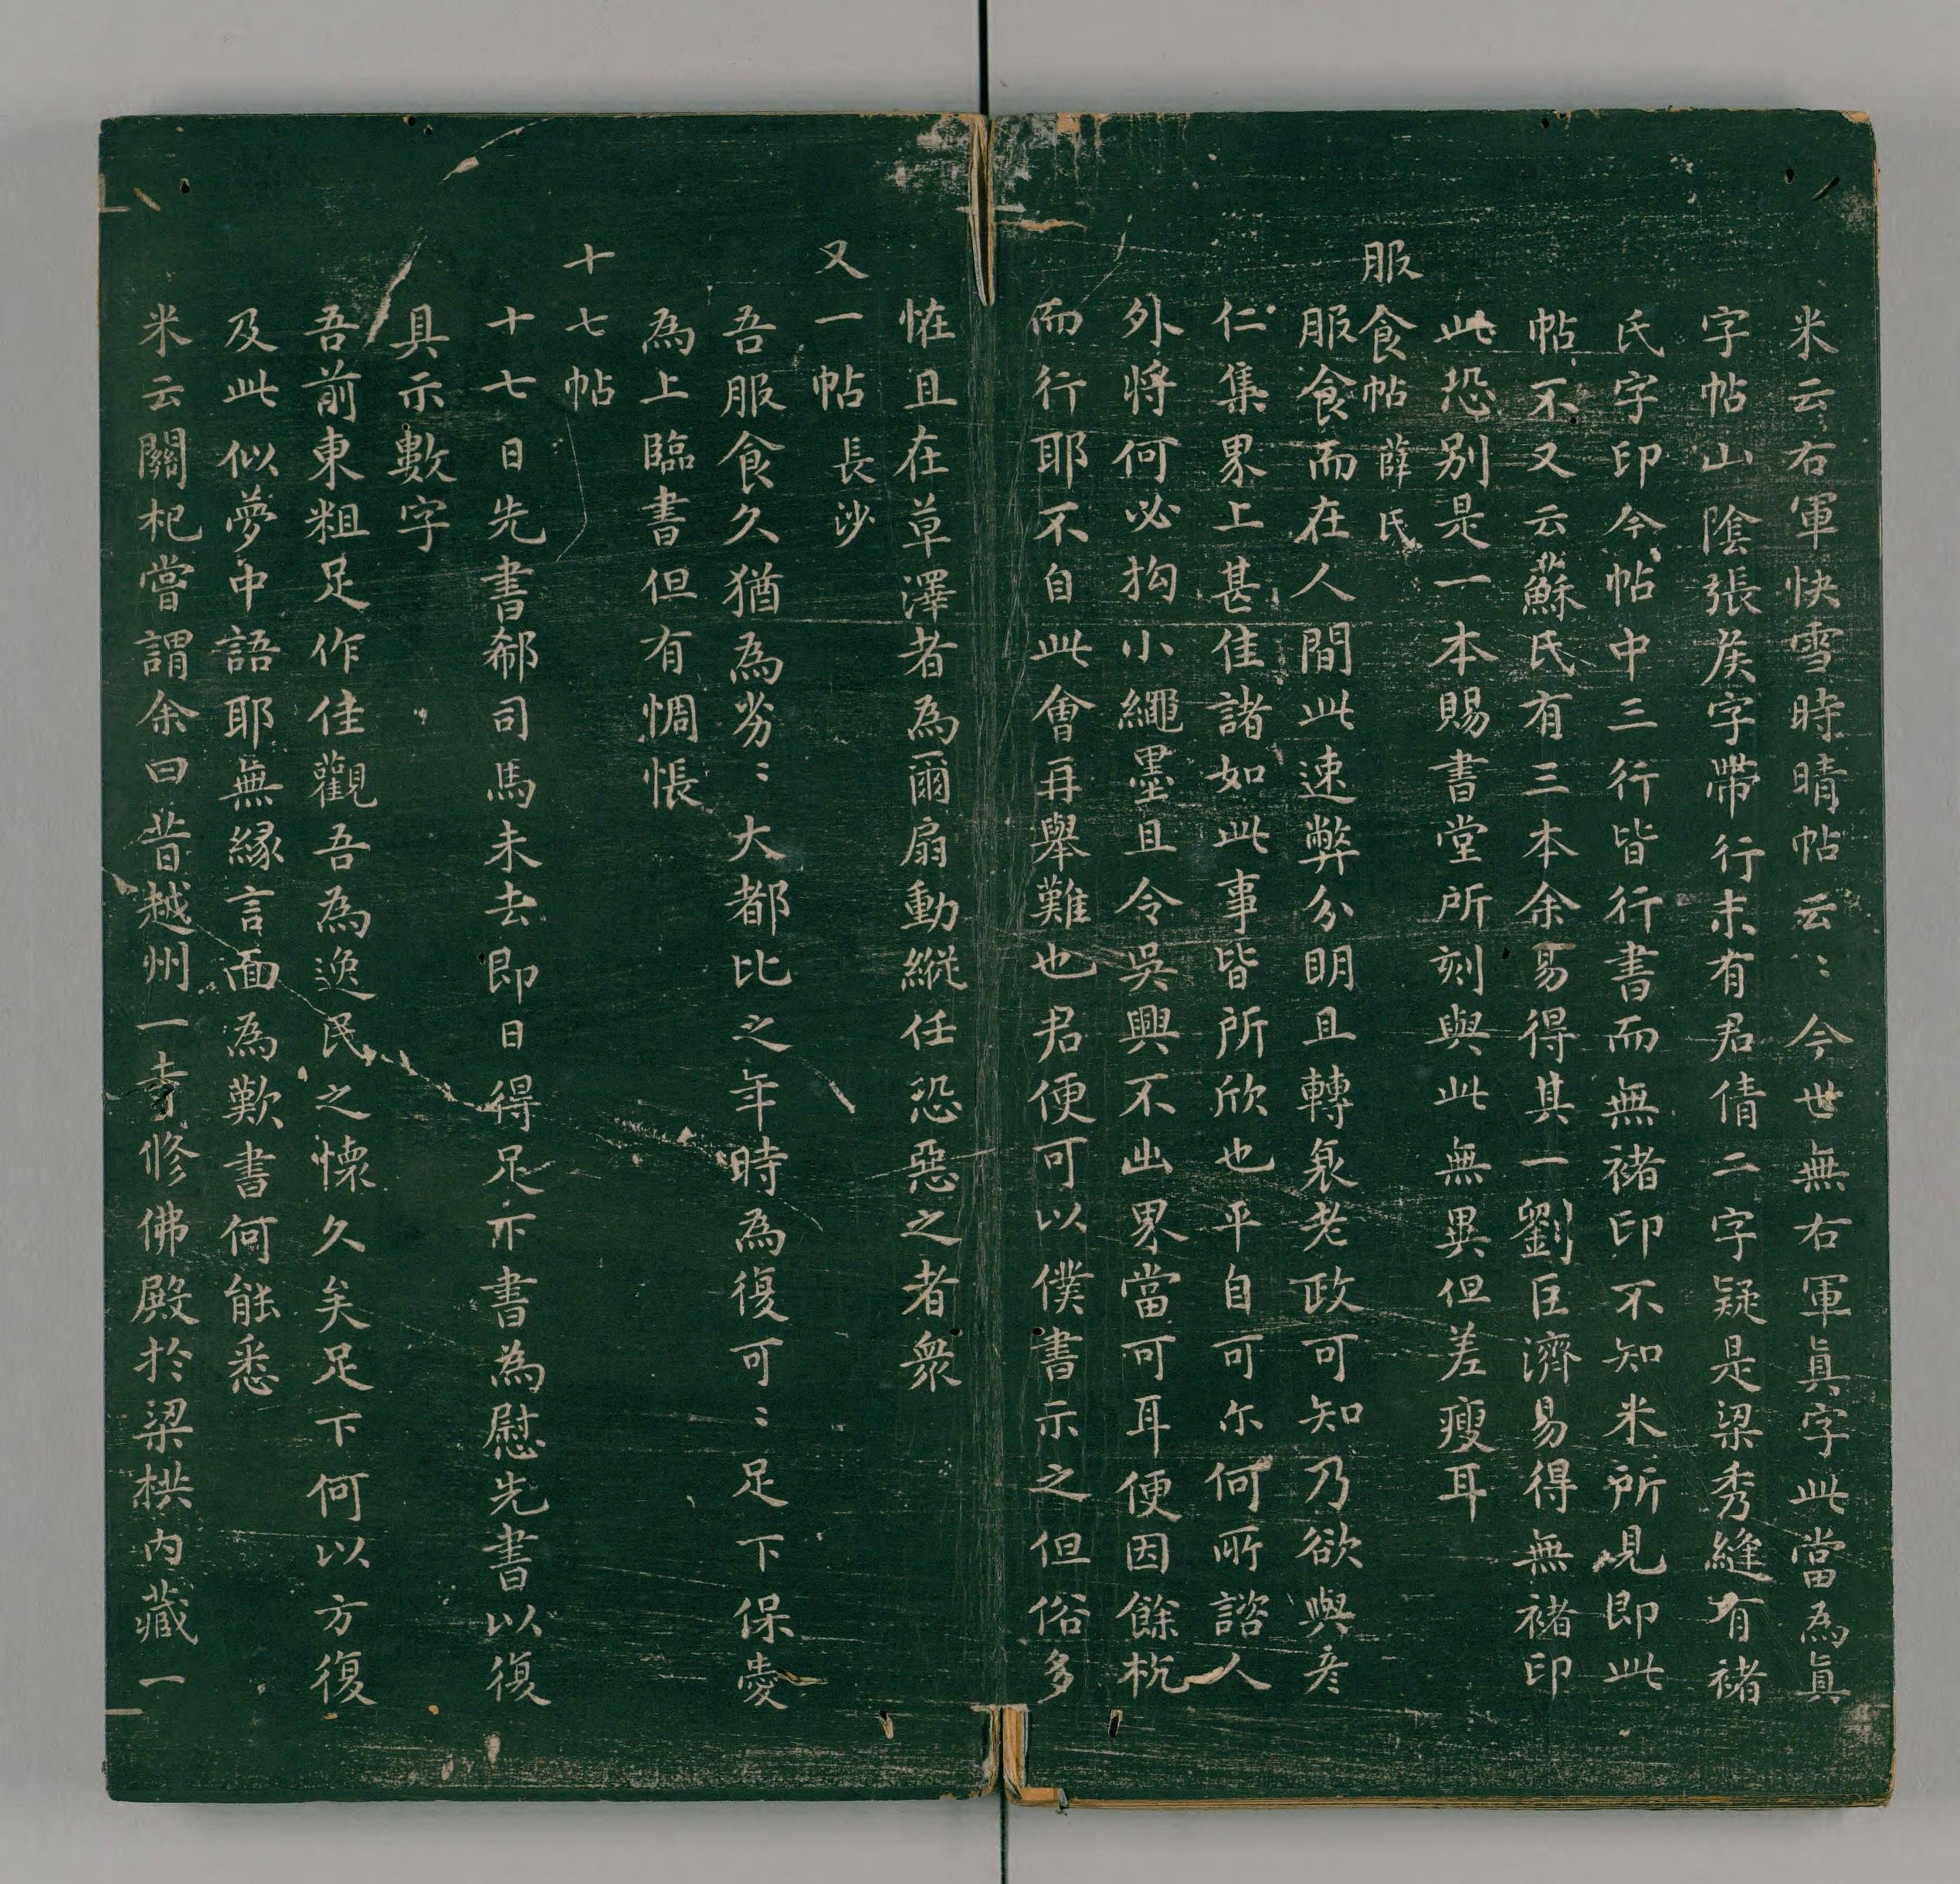 米云右軍快雪時晴帖云〻今世無右軍眞字此當為眞
字帖山陰張矦字帶行末有君倩二字疑是梁秀縫有褚
氏字印今帖中三行皆行書而無褚印不知米所見即此
帖不又云蘇氏有三本余易得其一劉巨濟易得無褚印
此恐別是一本賜書堂所刻與此無異但差瘦耳
服食帖 薛氏
服食而在人間此速弊分明且轉衰老政可知乃欲與彦
仁集界上甚佳諸如此事皆所欣也平自可尓何所諮人
外將何必拘小繩墨且令吳興不出界當可耳便因餘杭
而行耶不自此會再舉難也君便可以僕書示之但俗多
恠且在草澤者為爾扇動縱任恐惡之者衆
又一帖 長沙
吾服食久猶為劣〻大都比之年時為復可〻足下保愛
為上臨書但有惆悵
十七帖
十七日先書郗司馬未去即日得足下書為慰先書以復
具示數字
吾前東粗足作佳觀吾為逸民之懷久矣足下何以方復
及此似夢中語耶無緣言面為歎書何能悉
米云關杞嘗謂余曰昔越州一寺修佛殿於梁栱内藏一